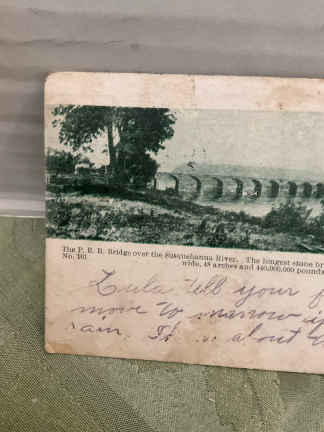 The P. R. R. Bridge over the Susquehanna River. The longest stone br
No. 101 wide, 48 arches and 440,000,000 pounds
Lula tell your f
move to morrow i
rain. It is about